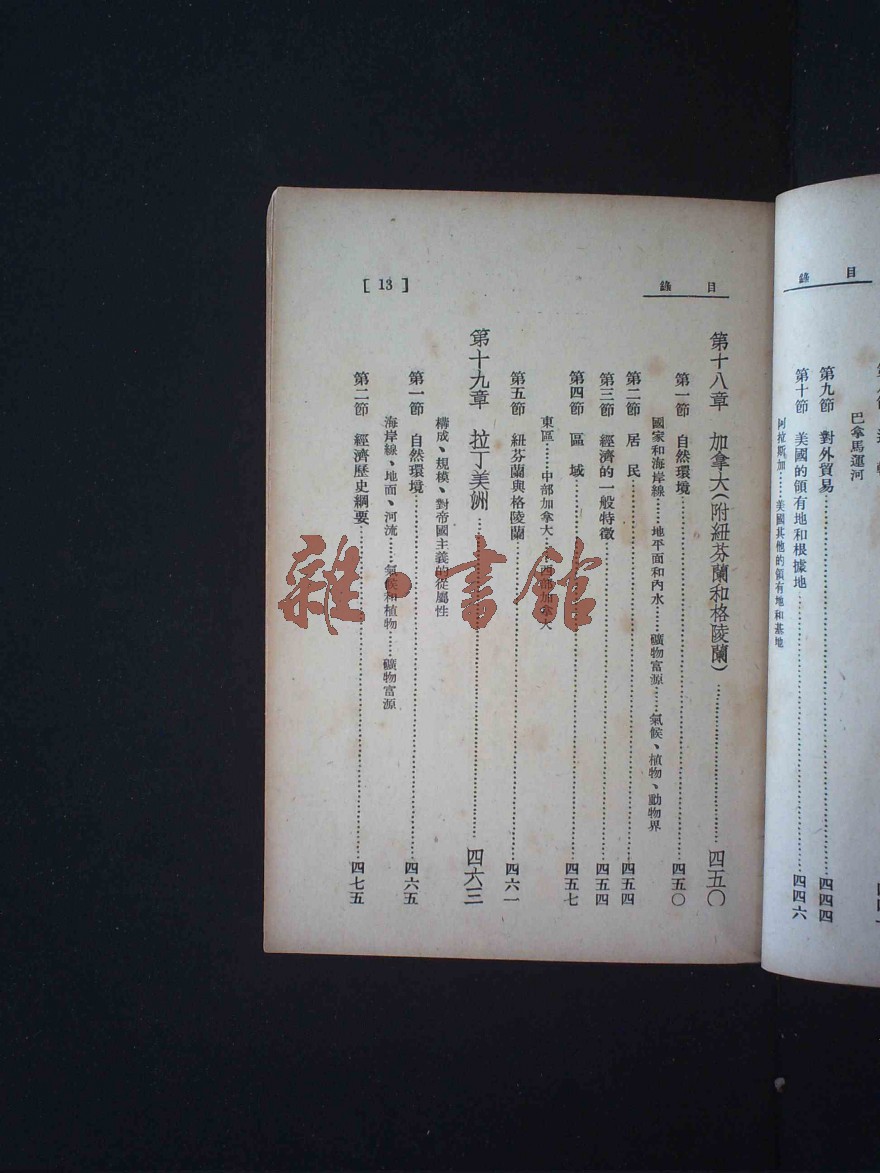 錄 目
巴拿馬運河
第九節 對外貿易……四四四
第十節 美國的領有地和根據地……四四六
阿拉斯加……美國其他的領有地和基地
[ 13 ]
錄 目
第十八章 加拿大(附紐芬蘭和格陵蘭)……四五〇
第一節 自然環境……四五〇
國家和海岸線……地平面和內水……礦物富源……氣候、植物、動物界
第二節 居民……四五四
第三節 經濟的一般特徵……四五四
第四節 區域……四五七
東區……中部加拿大……西部加拿大
第五節 紐芬蘭與格陵蘭……四六一
第十九章 拉丁美洲……四六三
構成、規模、對帝國主義的從屬性
第一節 自然環境……四六五
海岸線、地面、河流……氣候和植物……礦物富源
第二節 經濟歷史綱要……四七五
雜·書館